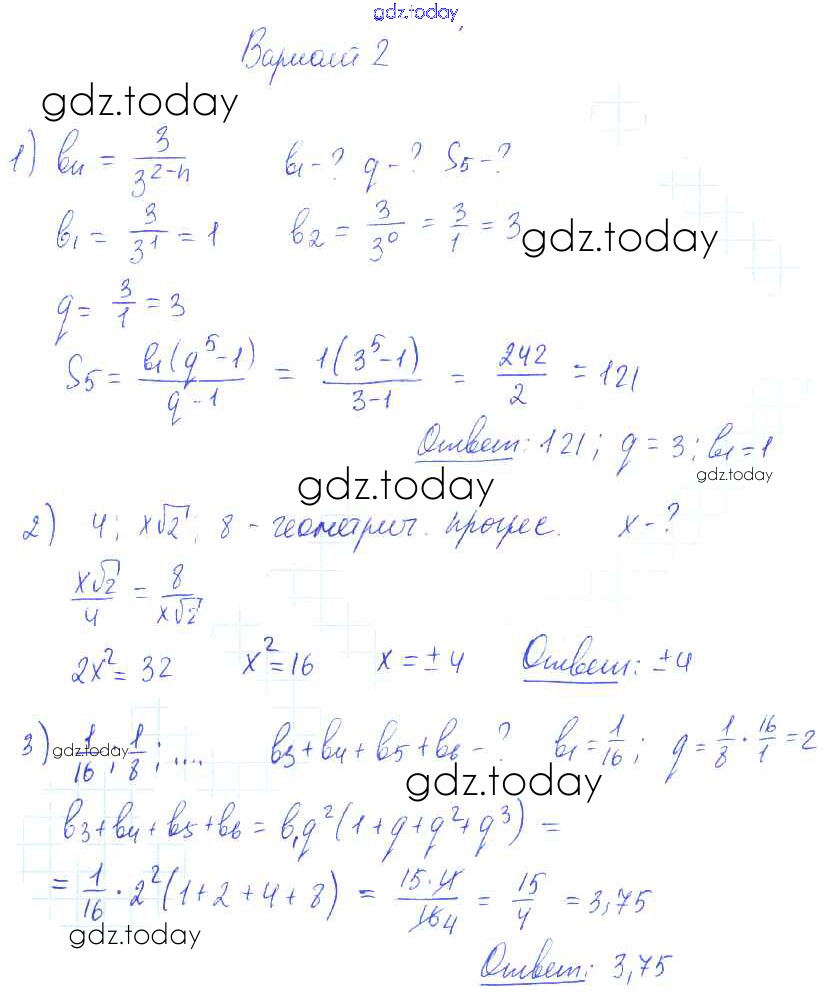 gdz.today
Вариант 2
gdz.today
1) bn = 3/3^(2-n)   b1 - ?  q - ?  S5 - ?
b1 = 3/3^1 = 1   b2 = 3/3^0 = 3/1 = 3
gdz.today
q = 3/1 = 3
S5 = b1(q^5-1)/(q-1) = 1(3^5-1)/(3-1) = 242/2 = 121
Ответ: 121; q = 3; b1 = 1
gdz.today
gdz.today
2) 4; x√2; 8 - геометрич. прогрес.   x - ?
x√2/4 = 8/(x√2)
2x² = 32   x² = 16   x = ±4   Ответ: ±4
3) 1/16; 1/8; ....   b3+b4+b5+b6 - ?   b1 = 1/16; q = 1/8 · 16/1 = 2
gdz.today
gdz.today
b3+b4+b5+b6 = b1q²(1+q+q²+q³) =
= 1/16 · 2²(1+2+4+8) = 15·4/16 4 = 15/4 = 3,75
gdz.today
Ответ: 3,75